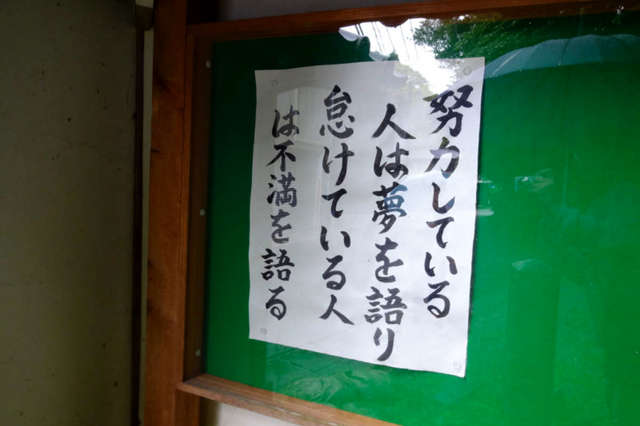 努力している
人は夢を語り
怠けている人
は不満を語る